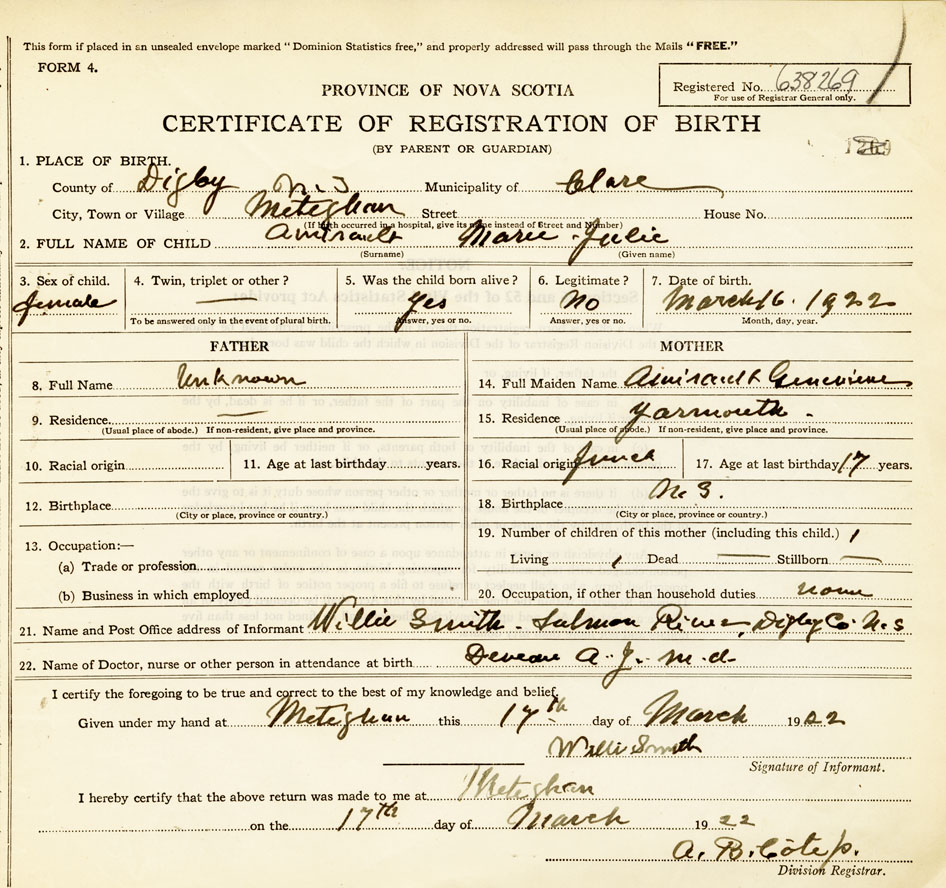 This form if placed in an unsealed envelope marked "Dominion Statistics free," and properly addressed will pass through the Mails "FREE."
FORM 4.
Registered No. 638269
For use of Registrar General only.
PROVINCE OF NOVA SCOTIA
CERTIFICATE OF REGISTRATION OF BIRTH
(BY PARENT OR GUARDIAN)
1. PLACE OF BIRTH.
County of Digby N.S Municipality of Clare
City, Town or Village Meteghan Street House No.
(If birth occurred in a hospital, give its name instead of Street and Number)
2. FULL NAME OF CHILD Amirault Marie Julie
(Surname) (Given name)
3. Sex of child. 4. Twin, triplet or other? 5. Was the child born alive? 6. Legitimate? 7. Date of birth.
female — yes No March 16. 1922
To be answered only in the event of plural birth. Answer, yes or no. Answer, yes or no. Month, day, year.
FATHER MOTHER
8. Full Name Unknown 14. Full Maiden Name Amirault Genevieve
9. Residence — 15. Residence Yarmouth -
(Usual place of abode.) If non-resident, give place and province. (Usual place of abode.) If non-resident, give place and province.
10. Racial origin 11. Age at last birthday years. 16. Racial origin French 17. Age at last birthday 17 years.
12. Birthplace 18. Birthplace N.S.
(City or place, province or country.) (City or place, province or country.)
13. Occupation:— 19. Number of children of this mother (including this child.) 1
(a) Trade or profession Living 1 Dead — Stillborn —
(b) Business in which employed 20. Occupation, if other than household duties none
21. Name and Post Office address of Informant Willie Smith - Salmon River, Digby Co. N.S
22. Name of Doctor, nurse or other person in attendance at birth Deveau A. J. M.d.
I certify the foregoing to be true and correct to the best of my knowledge and belief.
Given under my hand at Meteghan this 17th day of March 1922
Willie Smith
Signature of Informant.
I hereby certify that the above return was made to me at Meteghan
on the 17th day of March 1922
A. B. Cote
Division Registrar.